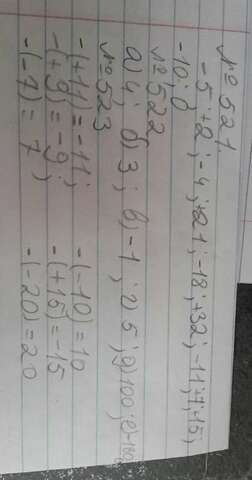 № 521.
-5; +2; -4; +21; -18; +32; -11; +7; -15;
-10; 0
№ 522
а) 4; б) 3; в) -1; г) 5; д) 100; е) -100
№ 523
-(+11) = -11; -(-10) = 10
-(+9) = -9; -(+15) = -15
-(-7) = 7 -(-20) = 20